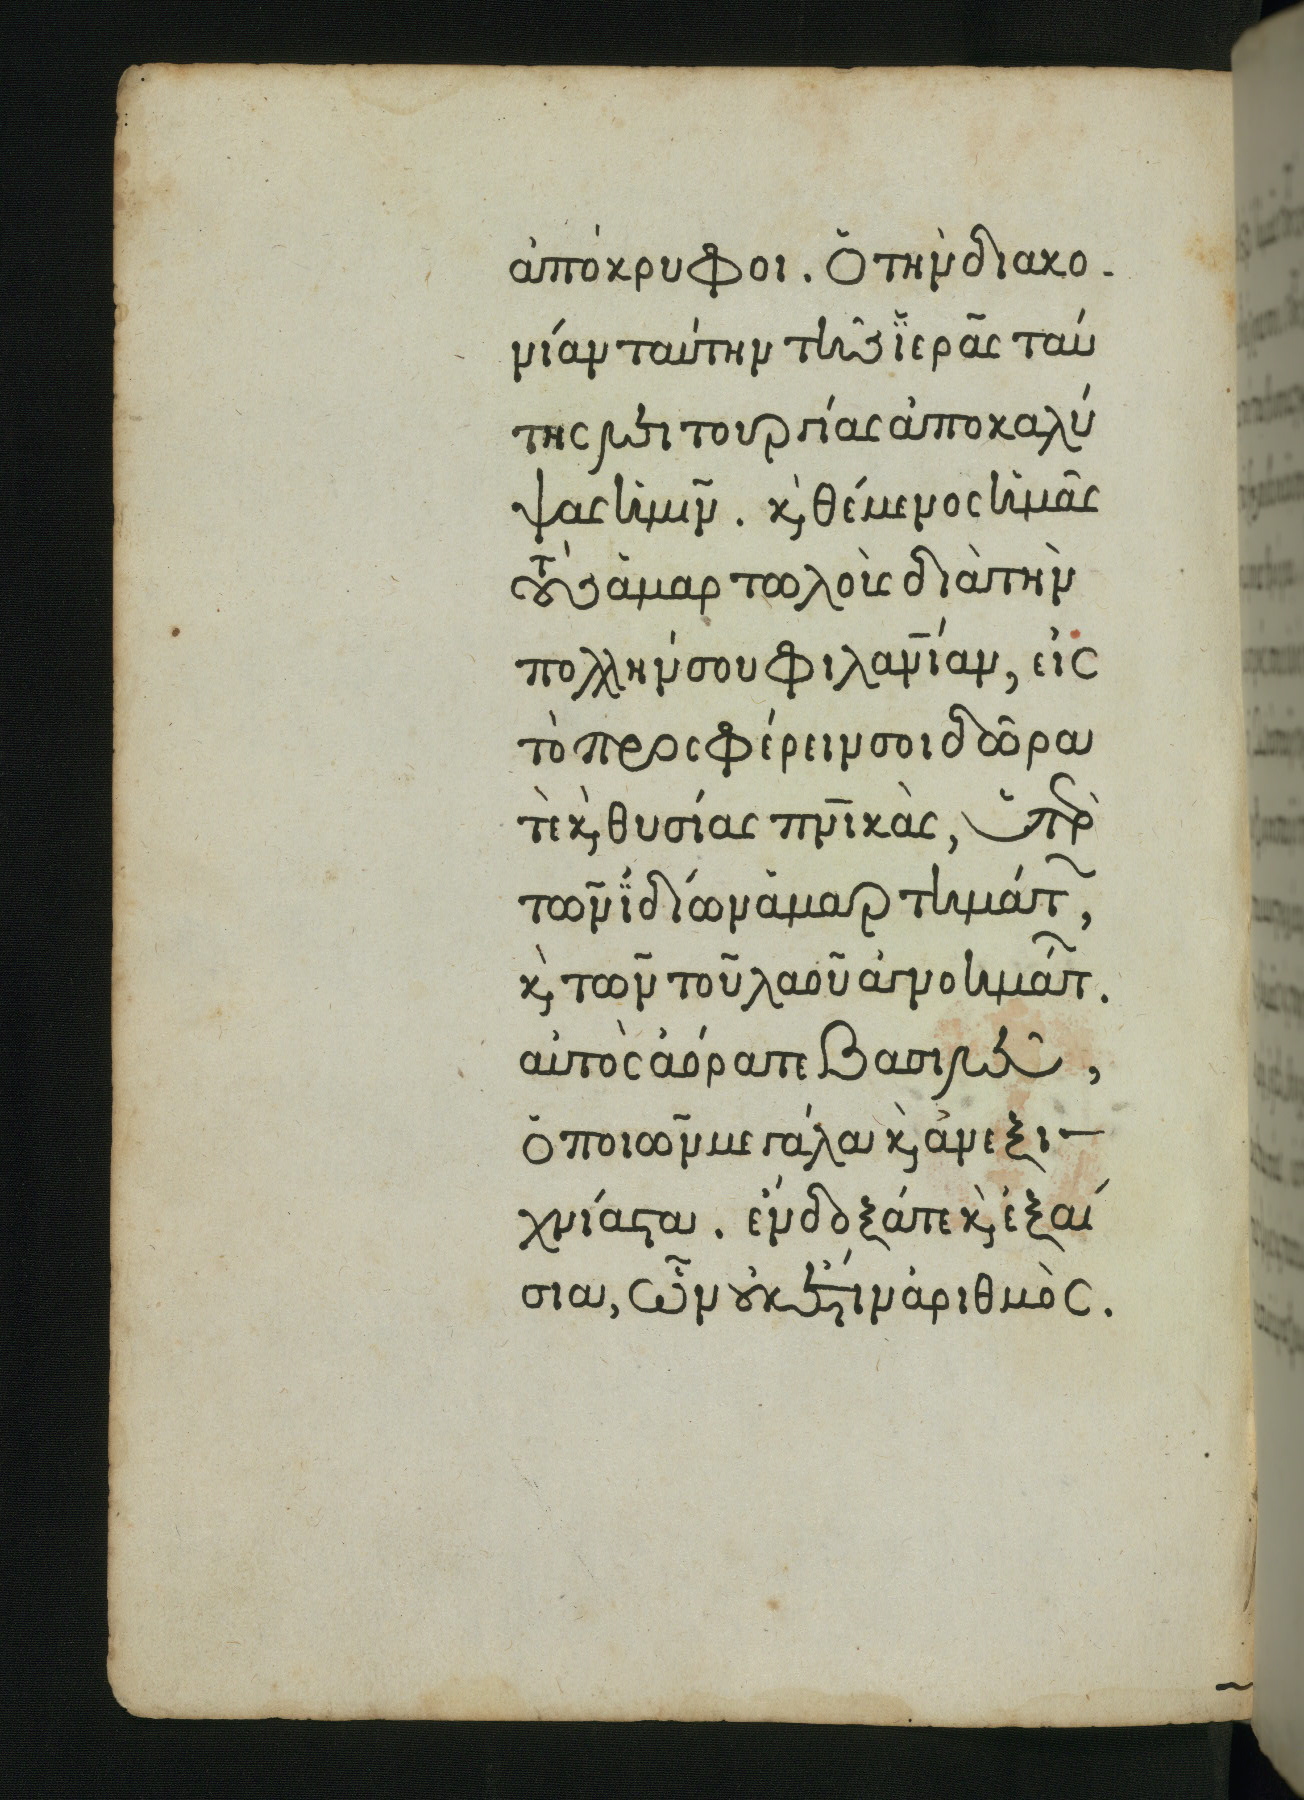 ἀπόκρυφοι. Ὁ τὴν διακο-
νίαν ταύτην τῆς ἱερᾶς ταύ
της λειτουργίας ἀποκαλύ
ψας ἡμῖν. κ, θέμενος ἡμᾶς
τοὺς ἁμαρτωλοὺς διὰ τὴν
πολλήν σου φιλανίαν, εἰς
τὸ προσφέρειν σοι δῶρα
τὲ κ, θυσίας πνικὰς, ὑπὲρ
τῶν ἰδίων ἁμαρτημάτ,
κ, τῶν τοῦ λαοῦ ἀγνοημάτ.
αὐτὸς ἀόρατε Βασιλεῦ,
ὁ ποιῶν μεγάλα κ, ἀνεξι-
χνίαστα. ἔνδοξάτε κ, ἐξαί
σια, ὧν οὐκ ἔστιν ἀριθμὸς.